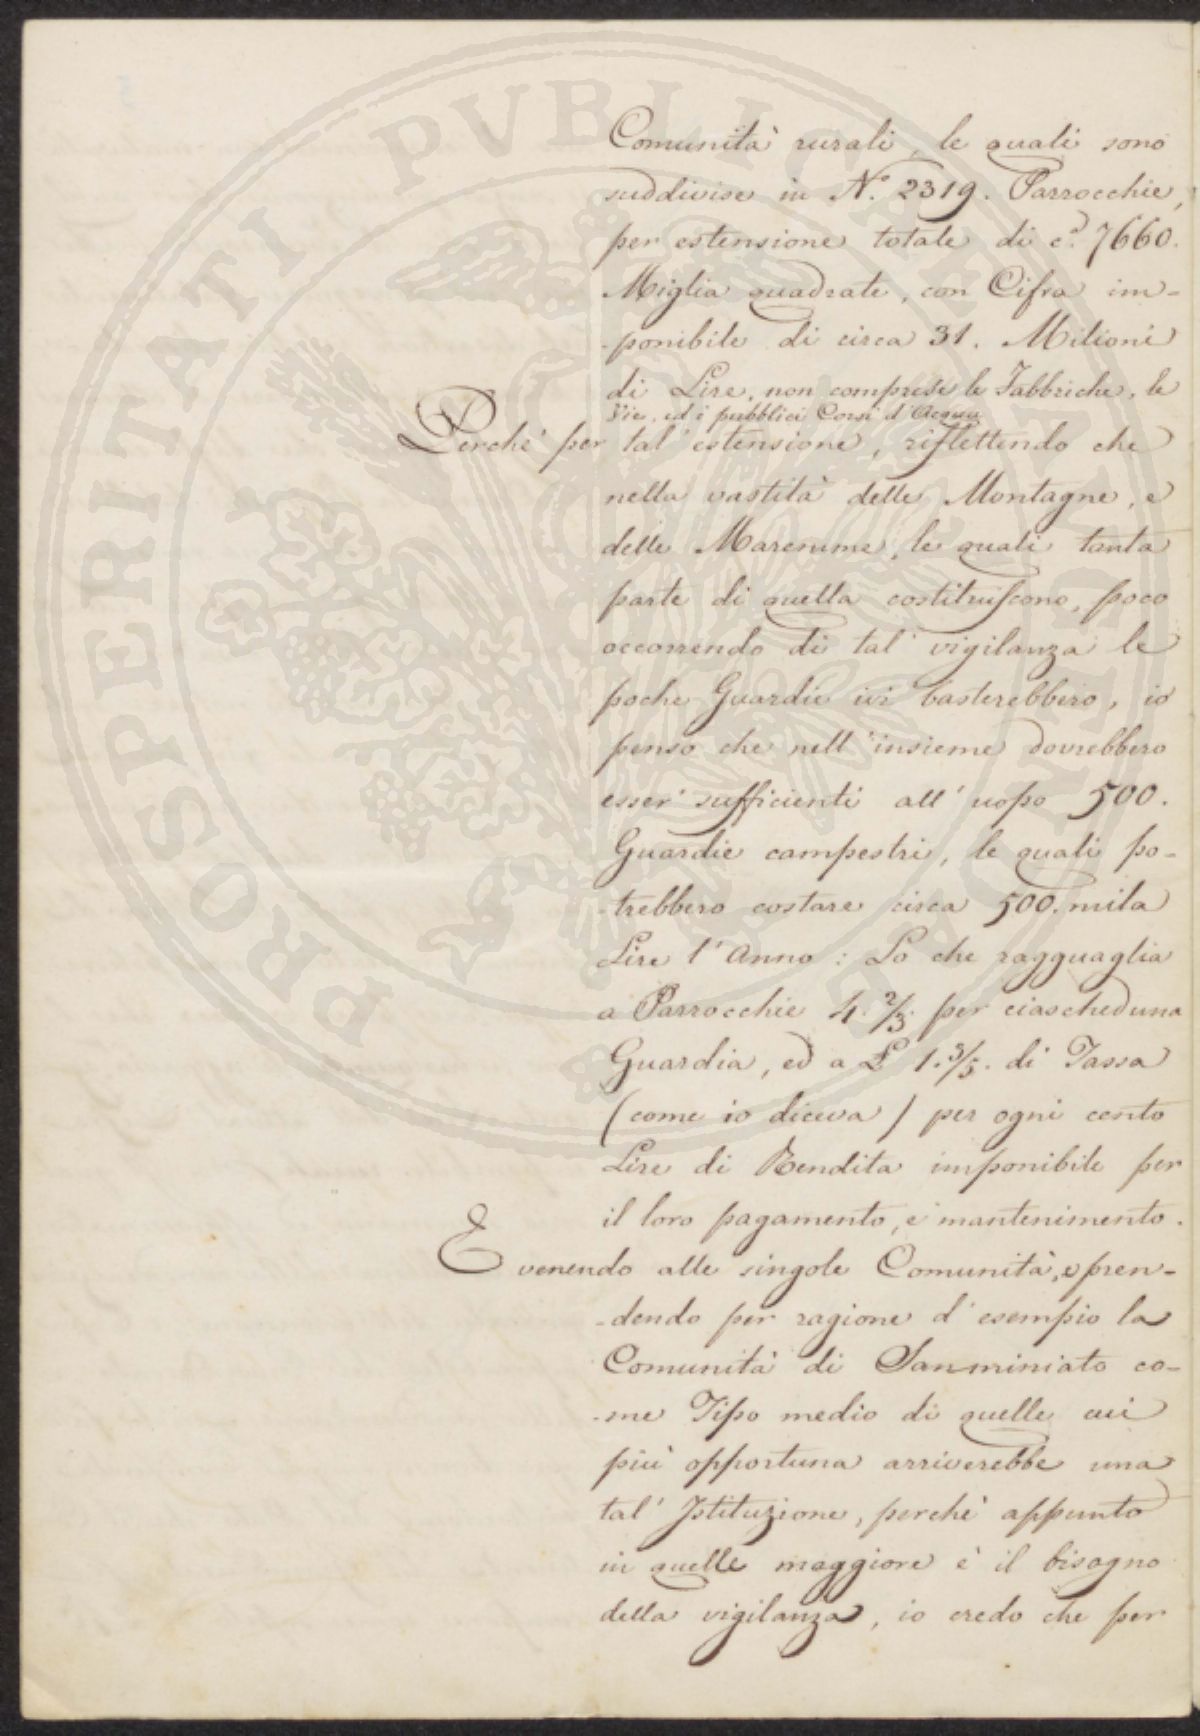 Comunità rurali, le quali sono
suddivise in N.º 2319. Parrocchie,
per estensione totale di c.ª 7660.
Miglia quadrate, con Cifra im-
-ponibile di circa 31. Milioni
di Lire, non comprese le Fabbriche, le
Vie, ed i pubblici Corsi d'Acqua
Perchè per tal' estensione, riflettendo che
nella vastità delle Montagne, e
delle Maremme, le quali tanta
parte di quella costituiscono, poco
occorrendo di tal' vigilanza le
poche Guardie ivi basterebbero, io
penso che nell'insieme dovrebbero
esser' sufficienti all'uopo 500.
Guardie campestri, le quali po-
-trebbero costare circa 500. mila
Lire l'Anno: Lo che ragguaglia
a Parrocchie 4. 2/3. per ciascheduna
Guardia, ed a £ 1. 3/5. di Tassa
(come io diceva) per ogni cento
Lire di Rendita imponibile per
il loro pagamento, e mantenimento.
E venendo alle singole Comunità, e pren-
-dendo per ragione d'esempio la
Comunità di Sanminiato co-
-me Tipo medio di quelle cui
più opportuna arriverebbe una
tal' Istituzione, perchè appunto
in quelle maggiore è il bisogno
della vigilanza, io credo che per
PROSPERITATI PVBLICAE AVGENDAE